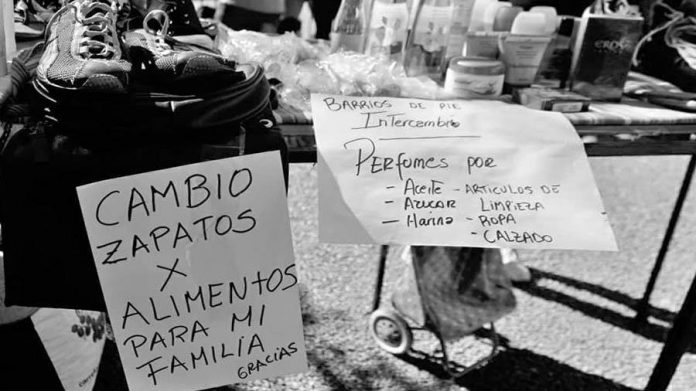 CAMBIO
ZAPATOS
X
ALIMENTOS
PARA MI
FAMILIA
GRACIAS
BARRIOS DE PIE
INTERCAMBIO
PERFUMES POR
- ACEITE - ARTICULOS DE
- AZUCAR LIMPIEZA
- HARINA - ROPA
- CALZADO
EROS